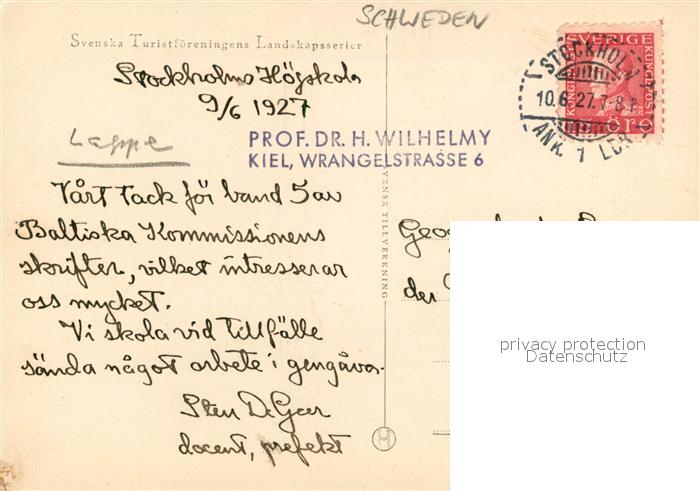 SCHWEDEN
Svenska Turistföreningens Landskapsserier
Stockholms Högskola
9/6 1927
Lappe
PROF. DR. H. WILHELMY
KIEL, WRANGELSTRASSE 6
Vårt tack för band 5 av
Baltiska Kommissionens
skrifter, vilket intresserar
oss mycket.
Vi skola vid tillfälle
sända något arbete i gengåvor.
Sten De Geer
docent, prefekt
SVENSK TILLVERKNING
SVERIGE
KUNGL. POST
ÖRE
STOCKHOLM
10.6.27.7-8
ANK. 1 LBR
der
privacy protection
Datenschutz